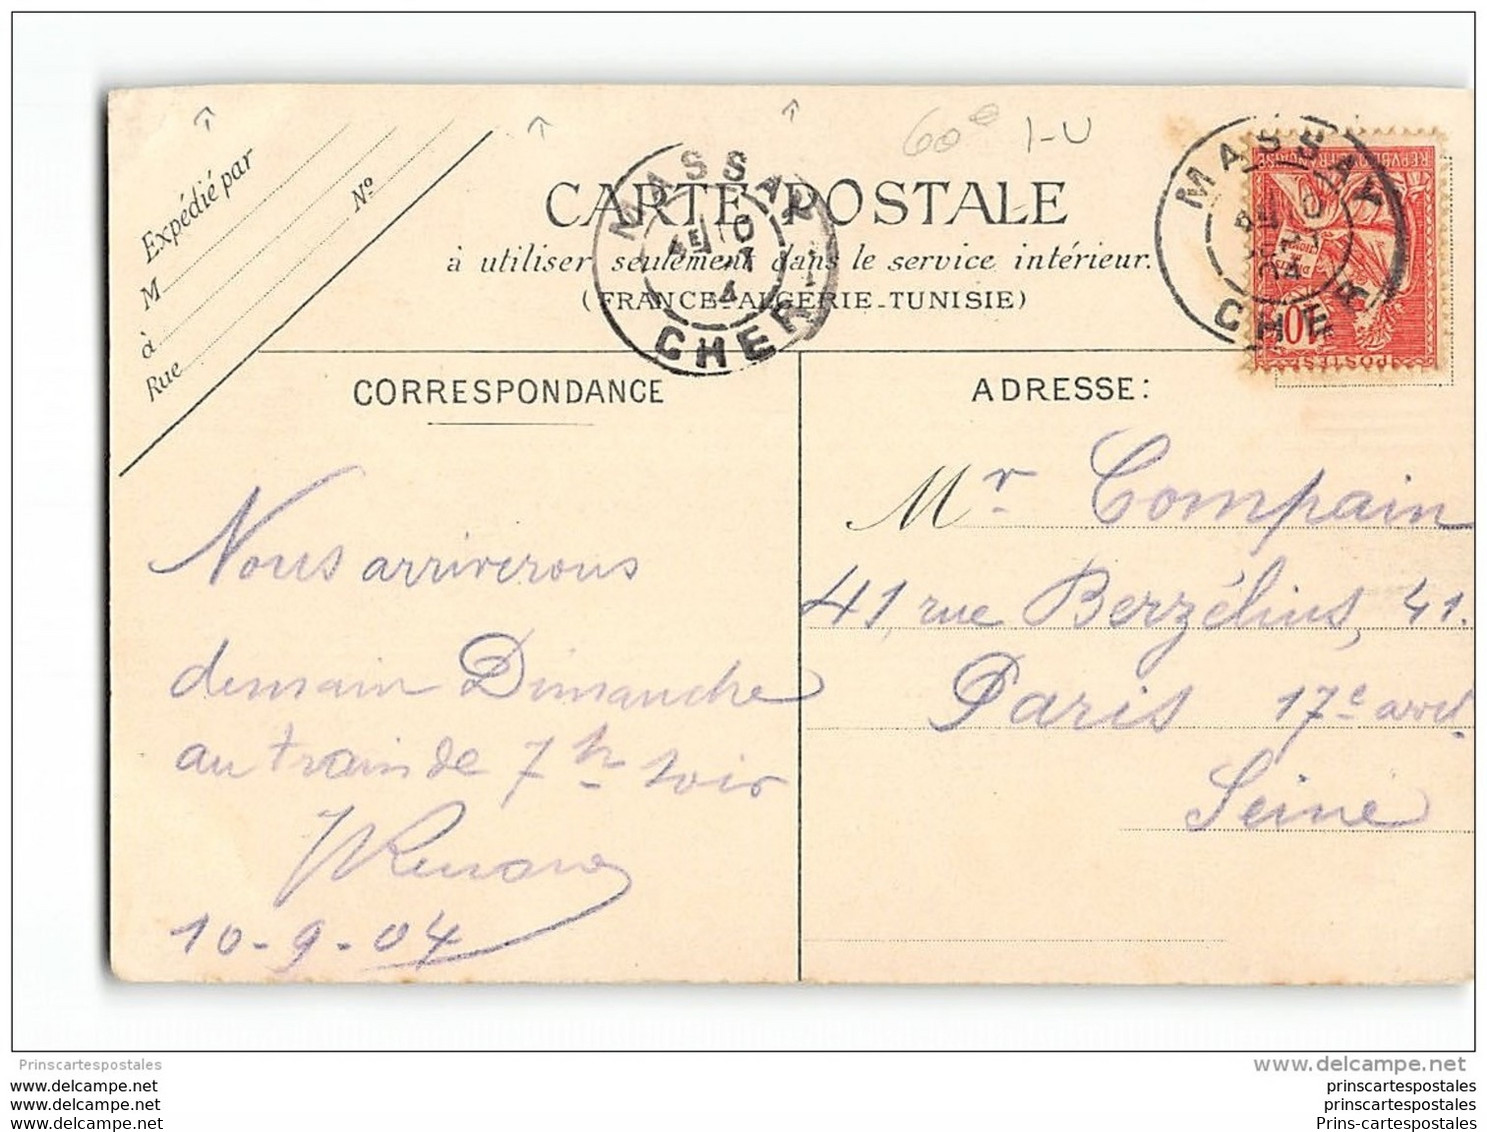 60e 1-U
Expédié par
M
à
Rue
No
CARTE POSTALE
à utiliser seulement dans le service intérieur.
(FRANCE-ALGERIE-TUNISIE)
MASSAY
CHER
MASSAY
CHER
04
REPUBLIQUE FRANÇAISE
10
POSTES
CORRESPONDANCE
Nous arriverons
demain Dimanche
au train de 7 h soir
10-9-04
ADRESSE:
Mr Compain
41, rue Berzélius, 41.
Paris 17e arrdt
Seine
Prinscartespostales
www.delcampe.net
www.delcampe.net
www.delcampe.net
www.delcampe.net
prinscartespostales
prinscartespostales
Prins-cartespostales